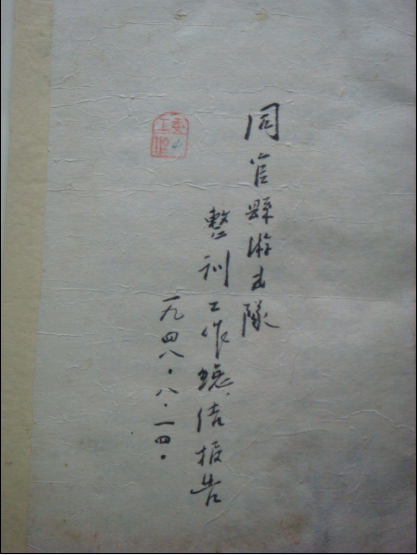 同官縣游击隊
整训工作總结报告
一九四八.八.一四.